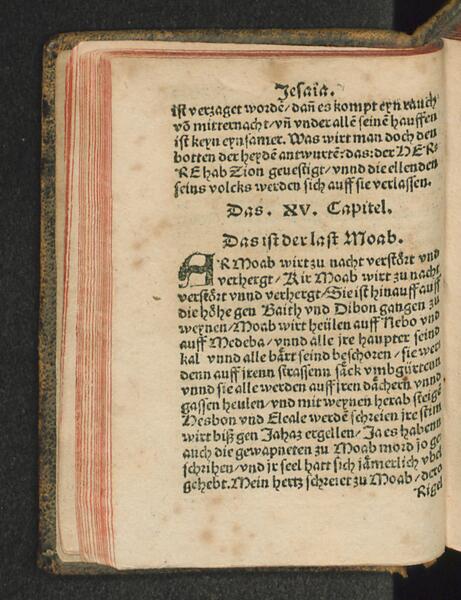 Jesaia.
ist verzaget wordẽ/ dañ es kompt eyn rauch
võ mitternacht/ vñ vnder allẽ seinẽ hauffen
ist keyn eynsamer. Was wirt man doch den
botten der heydẽ antwurtẽ: das: der HER-
RE hab Zion geuestigt/ vnnd die ellenden
seins volcks werden sich auff sie verlassen.
Das. XV. Capitel.
Das ist der last Moab.
AR Moab wirt zu nacht verstört vnd
verhergt/ Kir Moab wirt zu nacht
verstört vnnd verhergt/ Sie ist hinauff auff
die höhe gen Baith vnd Dibon gangen zu
weynen/ Moab wirt heülen auff Nebo vnd
auff Medeba/ vnnd alle jre haupter seind
kal vnnd alle bärt seind beschoren/ sie wer
denn auff jrenn strassenn säck vmbgürtenn
vnnd sie alle werden auff jren dächern vnnd
gassen heulen/ vnd mit weynen herab steigẽ
Hesbon vnd Eleale werdẽ schreien jre stim
wirt biß gen Jahaz ergellen/ Ja es habenn
auch die gewapneten zu Moab mord jo ge
schrihen/ vnd jr seel hart sich jämerlich vbel
gehebt. Mein hertz schreiet zu Moab/ dero
Rigel